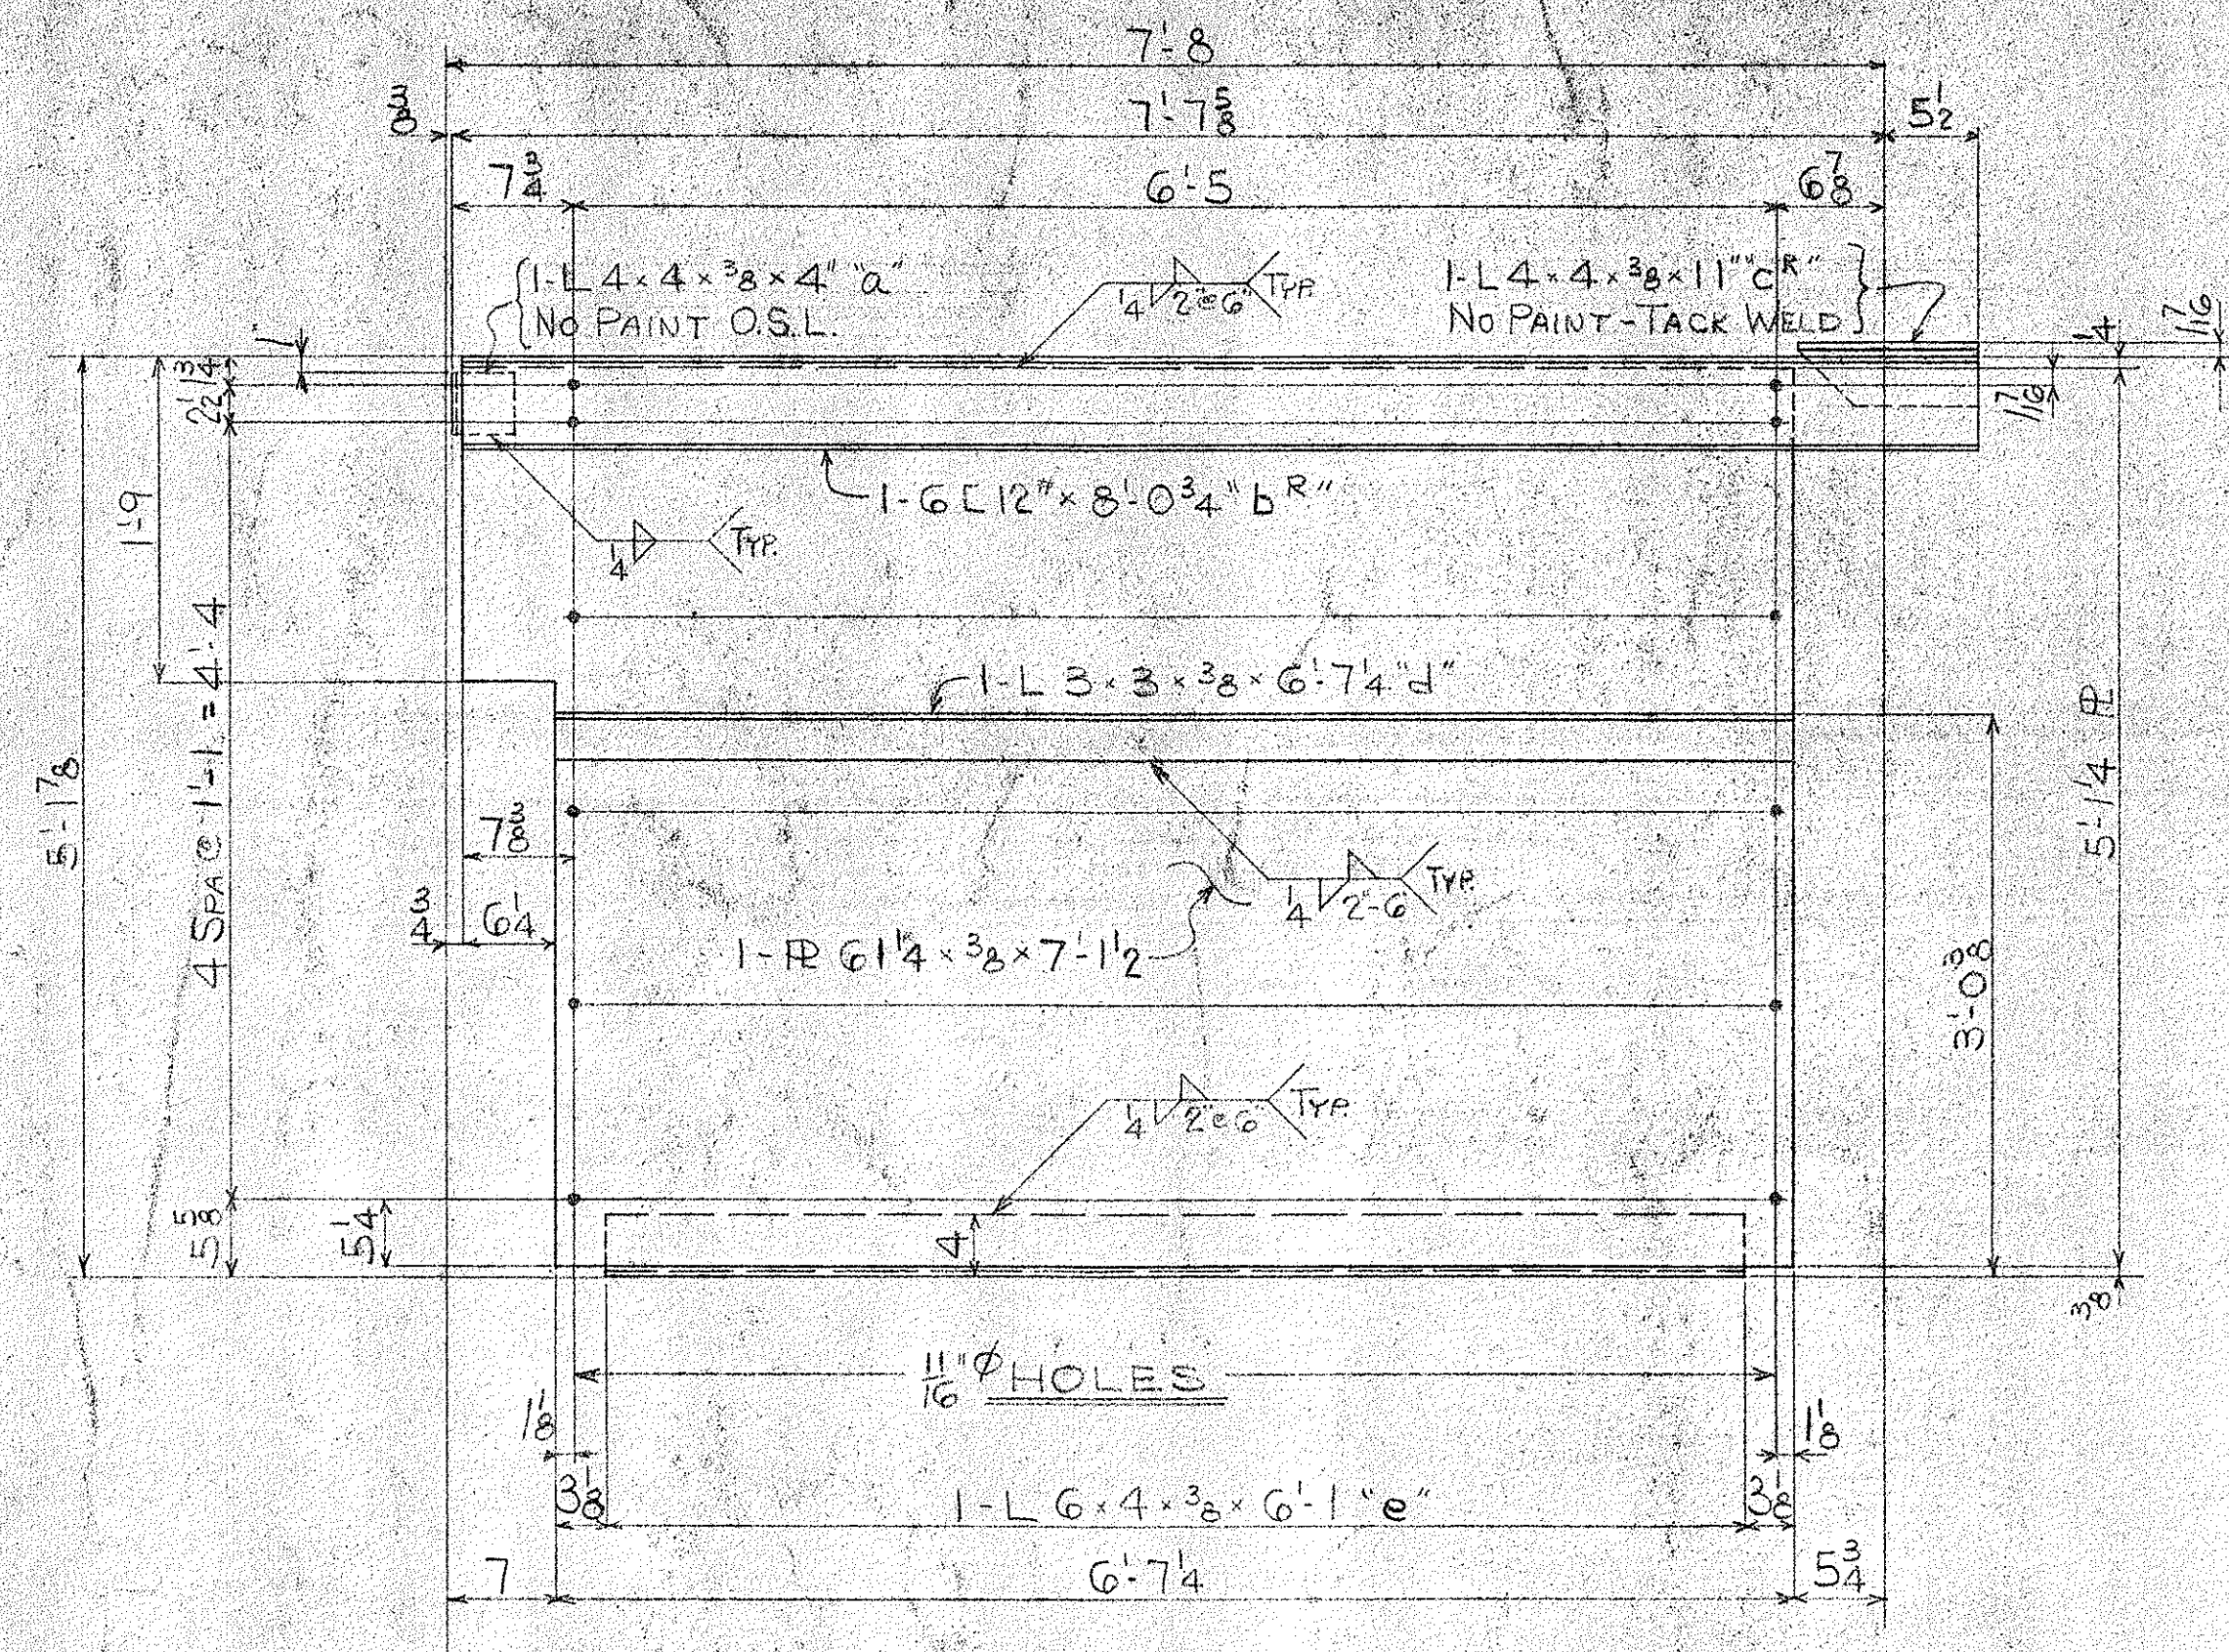 7'-8
3/8
7'-7 5/8
5 1/2
7 3/4
6'-5
6 7/8
1-L 4 × 4 × 3/8 × 4" "a"
NO PAINT O.S.L.
1/4 2"@6" TYP.
1-L 4 × 4 × 3/8 × 11" "c R"
NO PAINT-TACK WELD
1/4
7/16
1
1 3/4
2 1/2
1 7/16
1-6 [ 12# × 8'-0 3/4 "b R"
1/4 TYP.
1'-9
1-L 3 × 3 × 3/8 × 6'-7 1/4 "d"
5'-1 7/8
4 SPA @ 1'-1 = 4'-4
5'-1 1/4 PL
7 3/8
3/4
6 1/4
1/4 2"-6" TYP.
1-PL 61 1/4 × 3/8 × 7'-1 1/2
3'-0 3/8
1/4 2"@6" TYP.
5 5/8
5 1/4
4
3/8
11/16" Ø HOLES
1 1/8
1 1/8
3 1/8
1-L 6 × 4 × 3/8 × 6'-1 "e"
3 1/8
7
6'-7 1/4
5 3/4